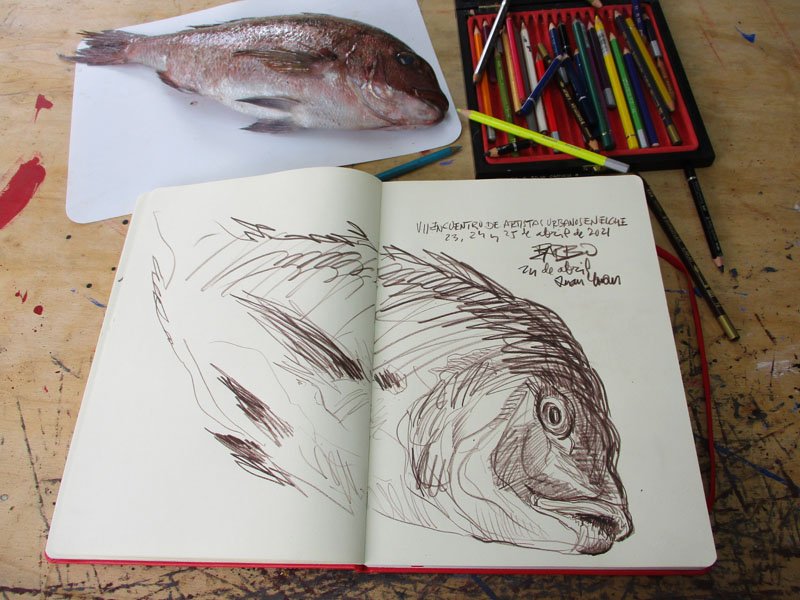 VII ENCUENTRO DE ARTISTAS URBANOS EN ELCHE
23, 24 y 25 de abril de 2021
24 de abril